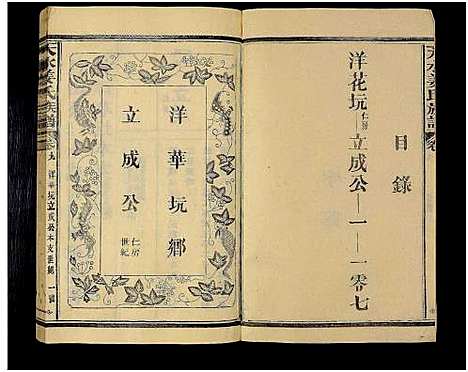 天水姜氏族譜
目錄
洋花坑仁房立成公—一—一零七
洋華坑鄉
立成公仁房世紀
天水姜氏族譜
洋華坑立成公本支世系 一頁